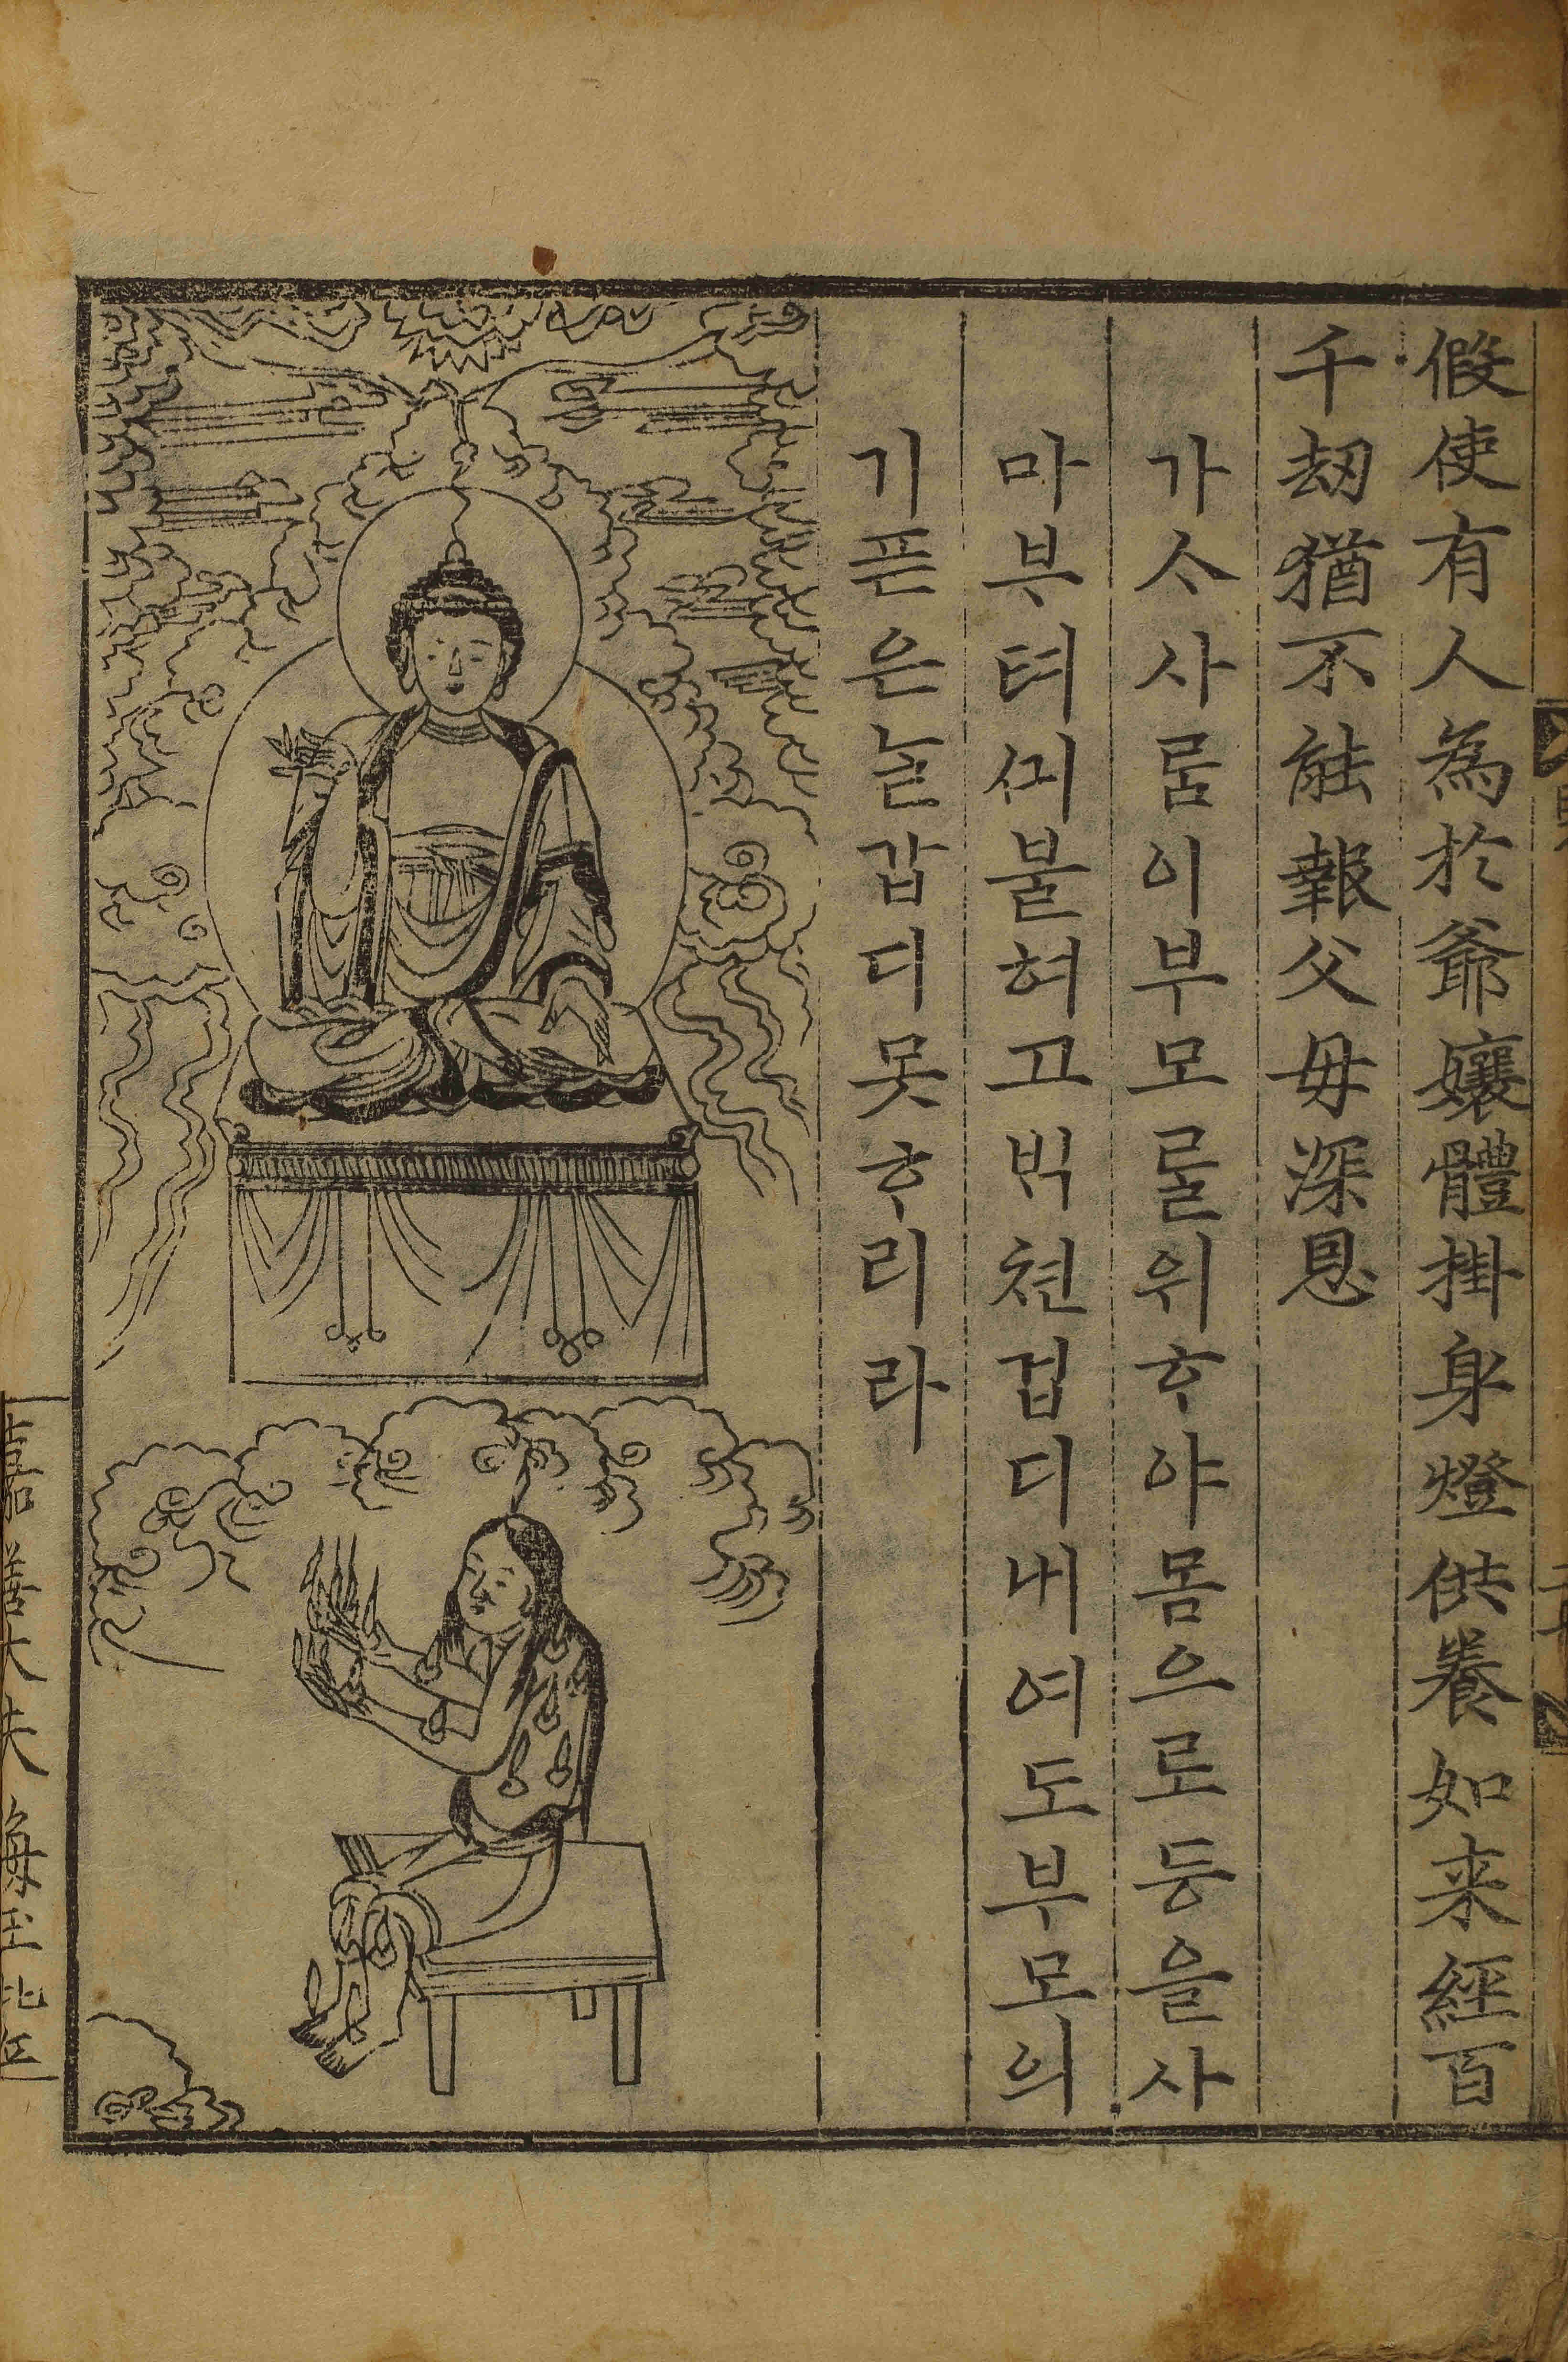 假使有人為於爺孃體掛身燈供養如来經百
千刼猶不能報父母深恩
가ᄉᆞ사ᄅᆞᆷ이부모ᄅᆞᆯ위ᄒᆞ야몸으로등을사
마부텨ᄭᅴ불혀고ᄇᆡᆨ쳔겁디내여도부모의
기픈은늘갑디못ᄒᆞ리라
嘉善大夫海玉比丘